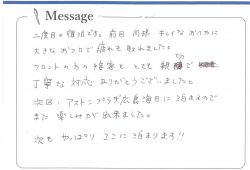 Message
二度目の宿泊です。前回同様 キレイなお部屋に
大きなおフロで疲れも取れました。
フロントの方の接客も とても 親切で
丁寧な対応 ありがとうございました。
次回、アストンプラザ広島海田市に泊まるので
また 楽しみが出来ました。
次も やっぱり ここに泊まります!!